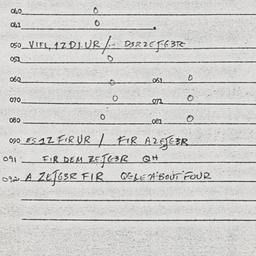 040 0
041 0
050 VIFL, 1ZDI.UR /
051 0
060 0 061 0
070 0 071 0
080 0 081 0
090 1Z FIRUR / FIR AZEJG3R
091 FIR DEM ZEJG3R QH
092 A ZEJG3R FIR QGLE'ABOUT'FOUR